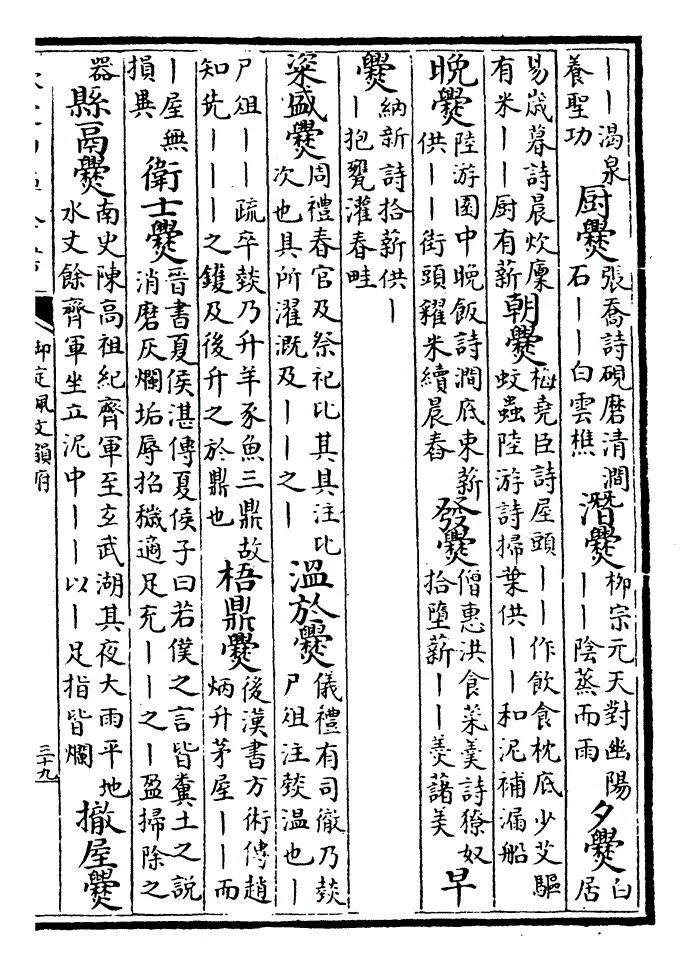 ——渴泉養聖功 厨爨 張喬詩硯磨清澗石——白雲樵 潛爨 柳宗元天對幽陽——陰蒸而雨 夕爨 白居
易歲暮詩晨炊廪有米——厨有薪 朝爨 梅堯臣詩屋頭——作飲食枕底少艾驅蚊蟲陸游詩掃葉供——和泥補漏船
晚爨 陸游園中晚飯詩澗底東薪供——街頭糴米續晨舂 發爨 僧惠洪食菜羹詩獠奴拾墮薪——羮藷美 早
爨 納新詩拾薪供——抱甕灌春畦
粢盛爨 周禮春官及祭祀比其具注比次也具所濯溉及——之— 溫於爨 儀禮有司徹乃燅尸俎注燅溫也—
尸俎——疏卒燅乃升羊豕魚三鼎故知先———之鑊及後升之於鼎也 梧鼎爨 後漢書方術傳趙炳升茅屋——而
—屋無損異 衛士爨 晉書夏侯湛傳夏侯子曰若僕之言皆糞土之說消磨灰爛垢辱招穢適足充——之—盈掃除之
器 縣鬲爨 南史陳高祖紀齊軍至玄武湖其夜大雨平地水丈餘齊軍坐立泥中——以—足指皆爛 撤屋爨
御定佩文韻府
三十九